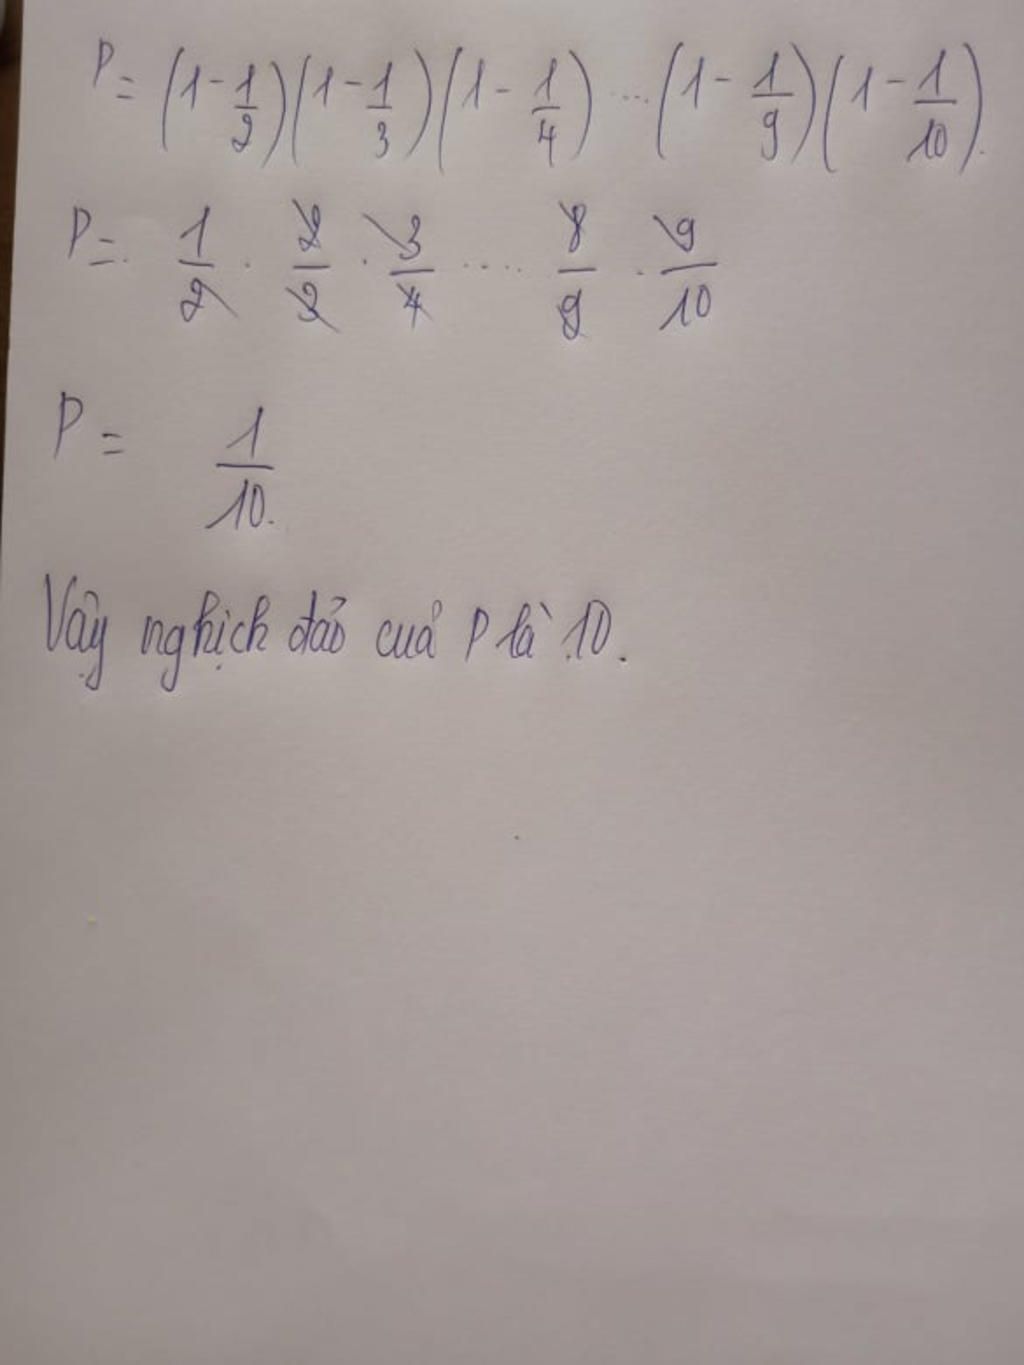 P = (1 - 1/2)(1 - 1/3)(1 - 1/4) .... (1 - 1/9)(1 - 1/10).
P = 1/2 . 2/3 . 3/4 ..... 8/9 . 9/10
P = 1/10.
Vậy nghịch đảo của P là 10.